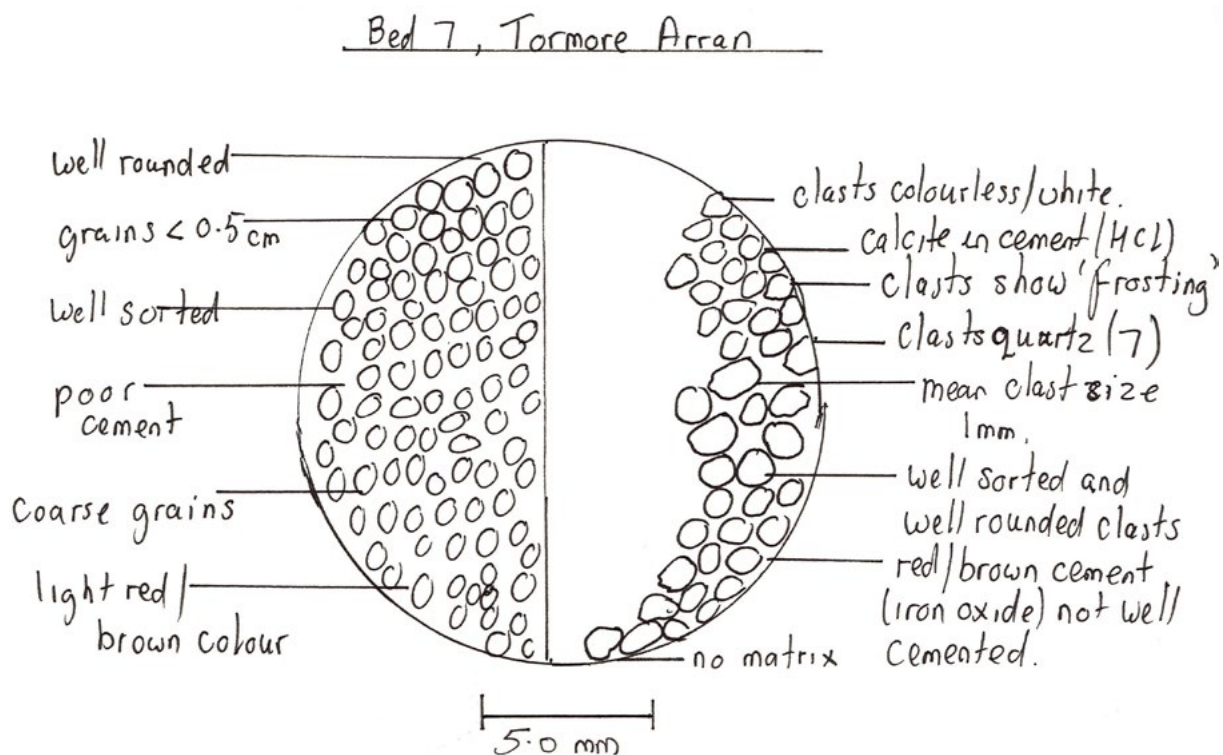 Bed 7, Tormore Arran
well rounded
grains < 0.5cm
well sorted
poor
cement
coarse grains
light red/
brown colour
clasts colourless/white.
calcite in cement (HCL)
clasts show 'frosting'
clasts quartz (7)
mean clast size
1mm.
well sorted and
well rounded clasts
red/brown cement
(iron oxide) not well
cemented.
no matrix
5.0 mm